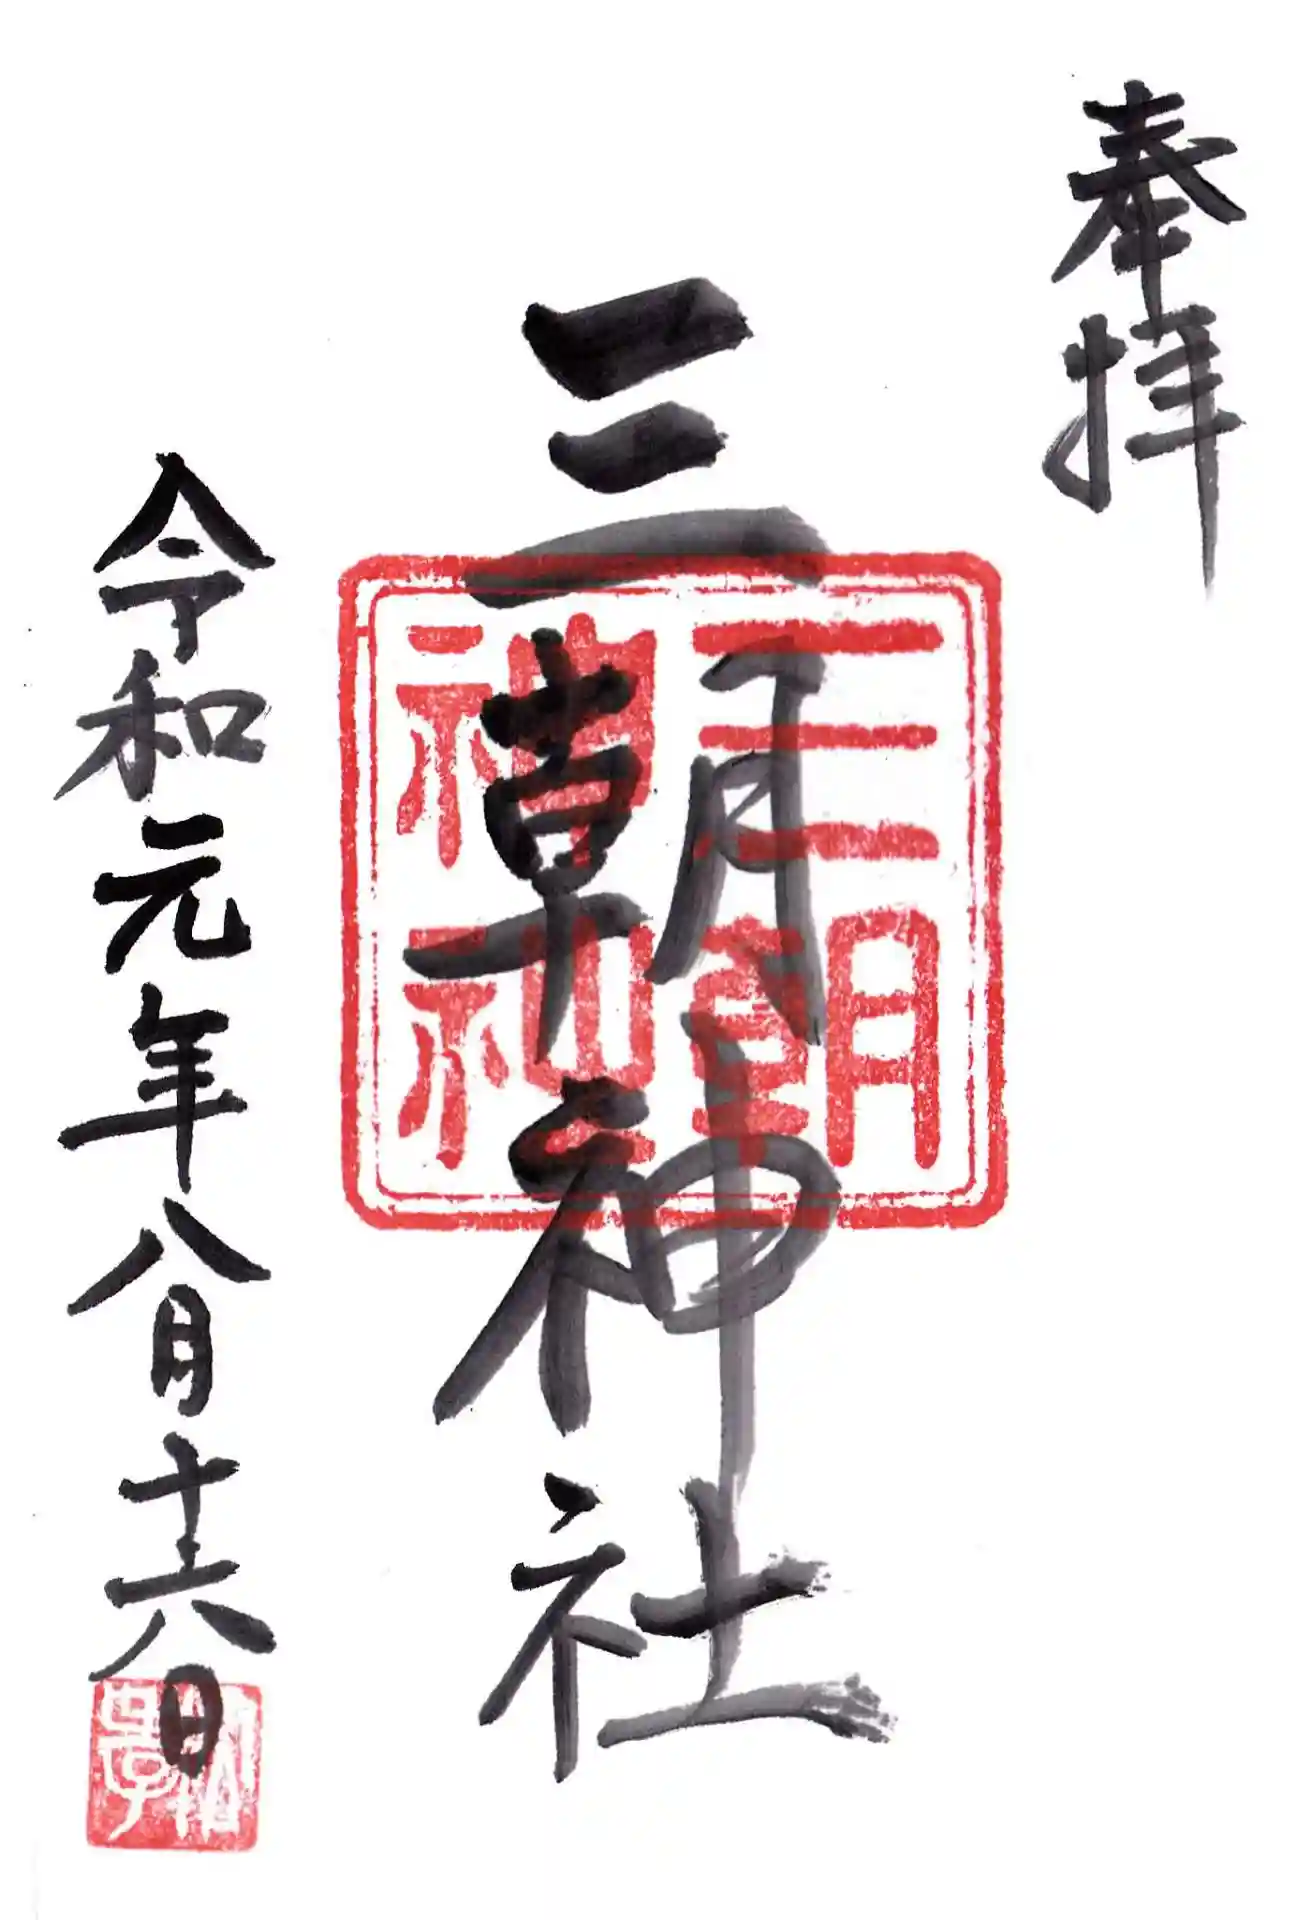 奉拝
三朝神社
三朝
神社
令和元年八月十六日